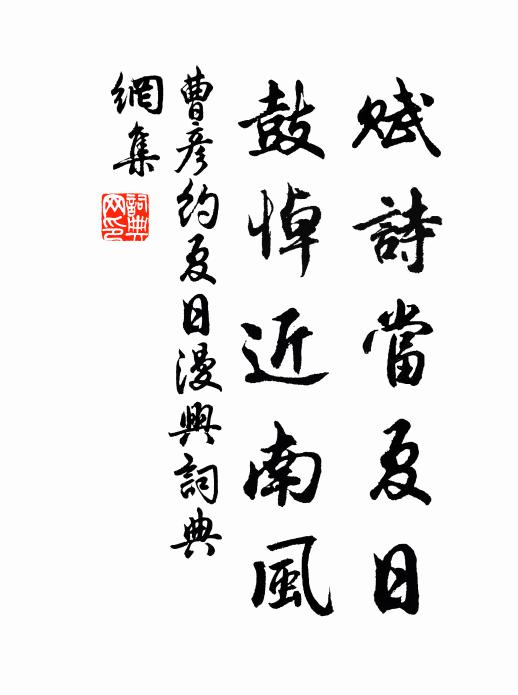 賦詩當夏日
鼓悼近南風
曹彦約夏日漫興詞典
網集
詞典
网印